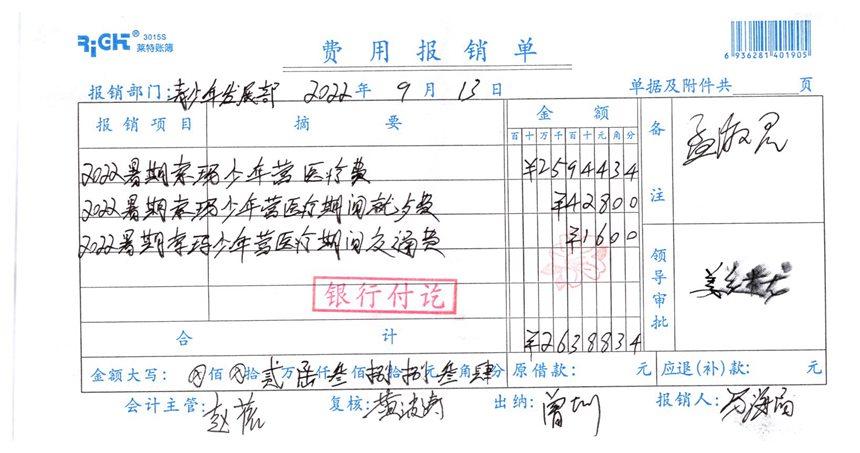 RiGHT® 3015S
莱特账簿
费用报销单
6 936281 401905
报销部门:青少年发展部 2022年 9月 13日 单据及附件共 页
报销项目 摘要 金额 备注
百十万千百十元角分
2022暑期索玛少年营医疗费 ¥2594434
2022暑期索玛少年营医疗期间就步费 ¥42800
2022暑期索玛少年营医疗期间交通费 ¥1600
领导审批
银行付讫
合计 ¥2638834
金额大写: 佰 拾贰万陆仟叁佰捌拾捌元叁角肆分 原借款: 元 应退(补)款: 元
会计主管: 赵 复核: 黄 出纳: 曾 报销人: